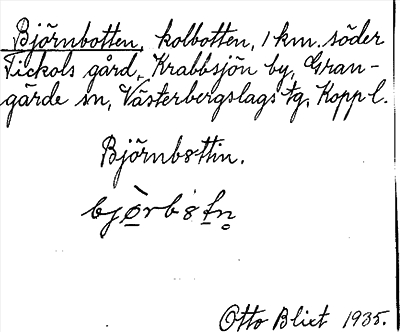 Björnbotten, kolbotten, 1 km. söder
Tickols gård, Krabbsjön by, Gran-
gärde sn, Västerbergslags tg, Kopp l.
Björnbottin.
Otto Blixt 1935.